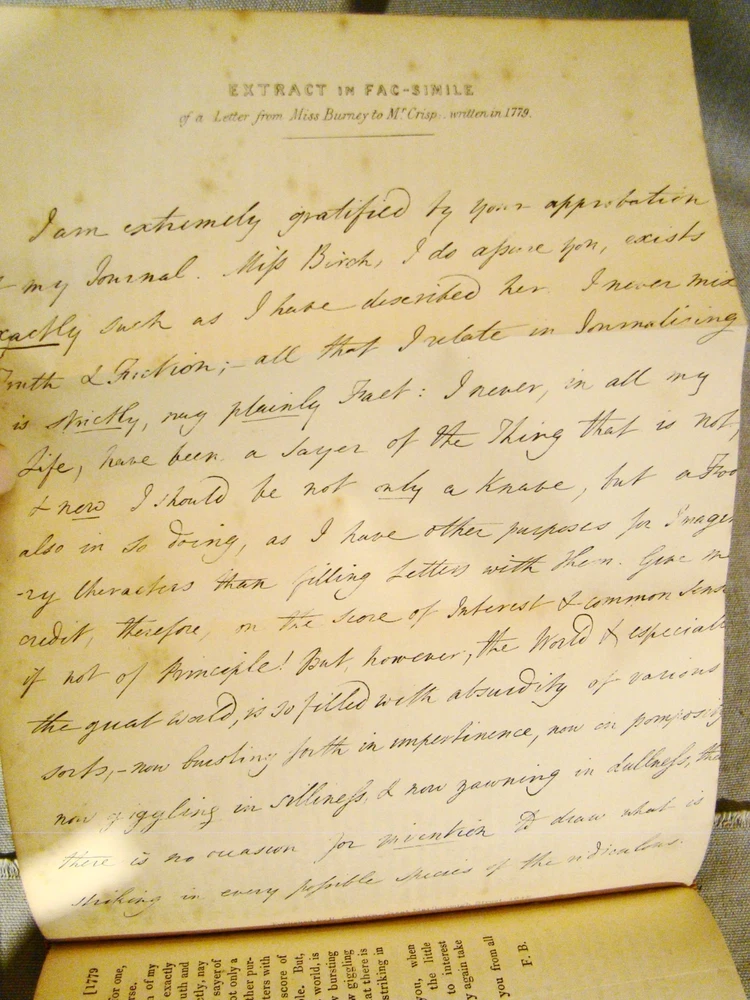 EXTRACT IN FAC-SIMILE
of a Letter from Miss Burney to Mr Crisp.. written in 1779.
I am extremely gratified by your approbation
my Journal. Miss Birch, I do assure you, exists
xactly such as I have described her. I never mix
Truth & Fiction; - all that I relate in Journalising
is strictly, nay plainly Fact: I never, in all my
Life, have been a sayer of the Thing that is not,
& now I should be not only a Knave, but a Foo
also in so doing, as I have other purposes for Imagin
-ry Characters than filling Letters with them. Give m
credit, therefore, on the score of Interest & common sense
if not of Principle! But, however, the World & especiall
the great World, is so filled with absurdity of various
sorts, - now bursting forth in impertinence, now in pomposity
now giggling in silliness, & now yawning in dullness, tha
there is no occasion for invention to draw what is
striking in every possible species of the ridiculous.
[1779
for one,
rse.
n of my
exactly
uth and
tly, nay
sayer of
ot only a
ther pur-
ters with
score of
ple. But,
world, is
w bursting
w giggling
at there is
striking in
you, when
the little
to interest
y again take
you from all
F. B.